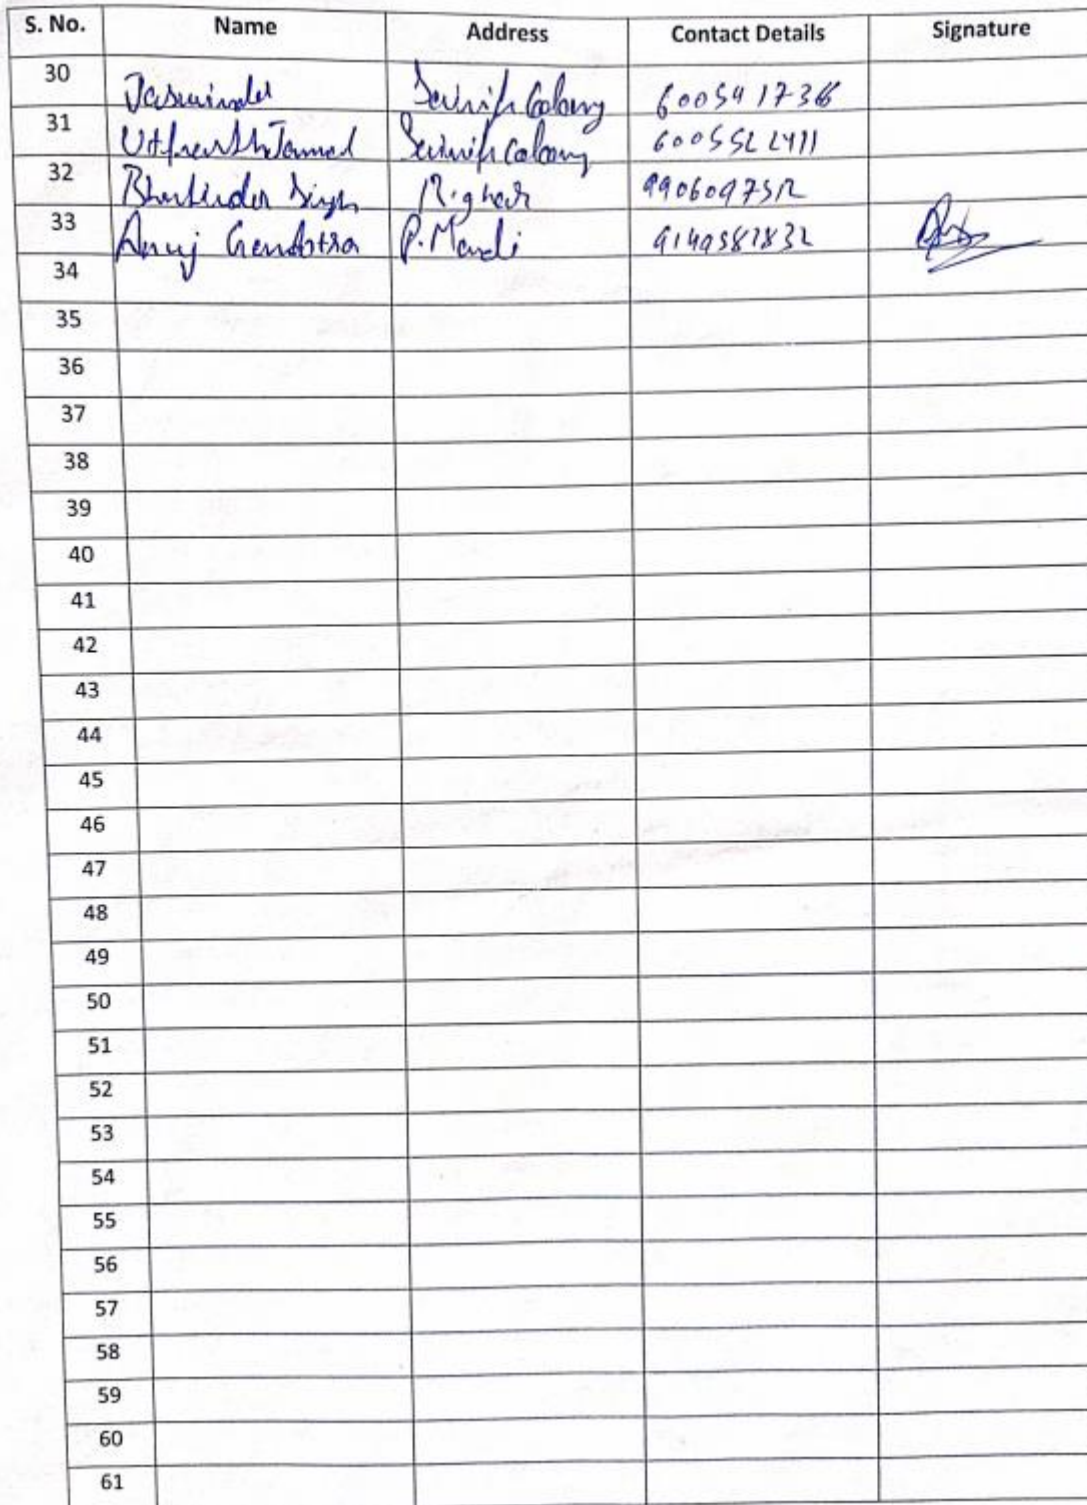 S. No. Name Address Contact Details Signature
30 Jaswinder Sainik Colony 6005417366
31 Sainik Colony
32 Bhutinder Singh 990609752
33 Anuj Gandotra P. Mandi 9149587832
34
35
36
37
38
39
40
41
42
43
44
45
46
47
48
49
50
51
52
53
54
55
56
57
58
59
60
61